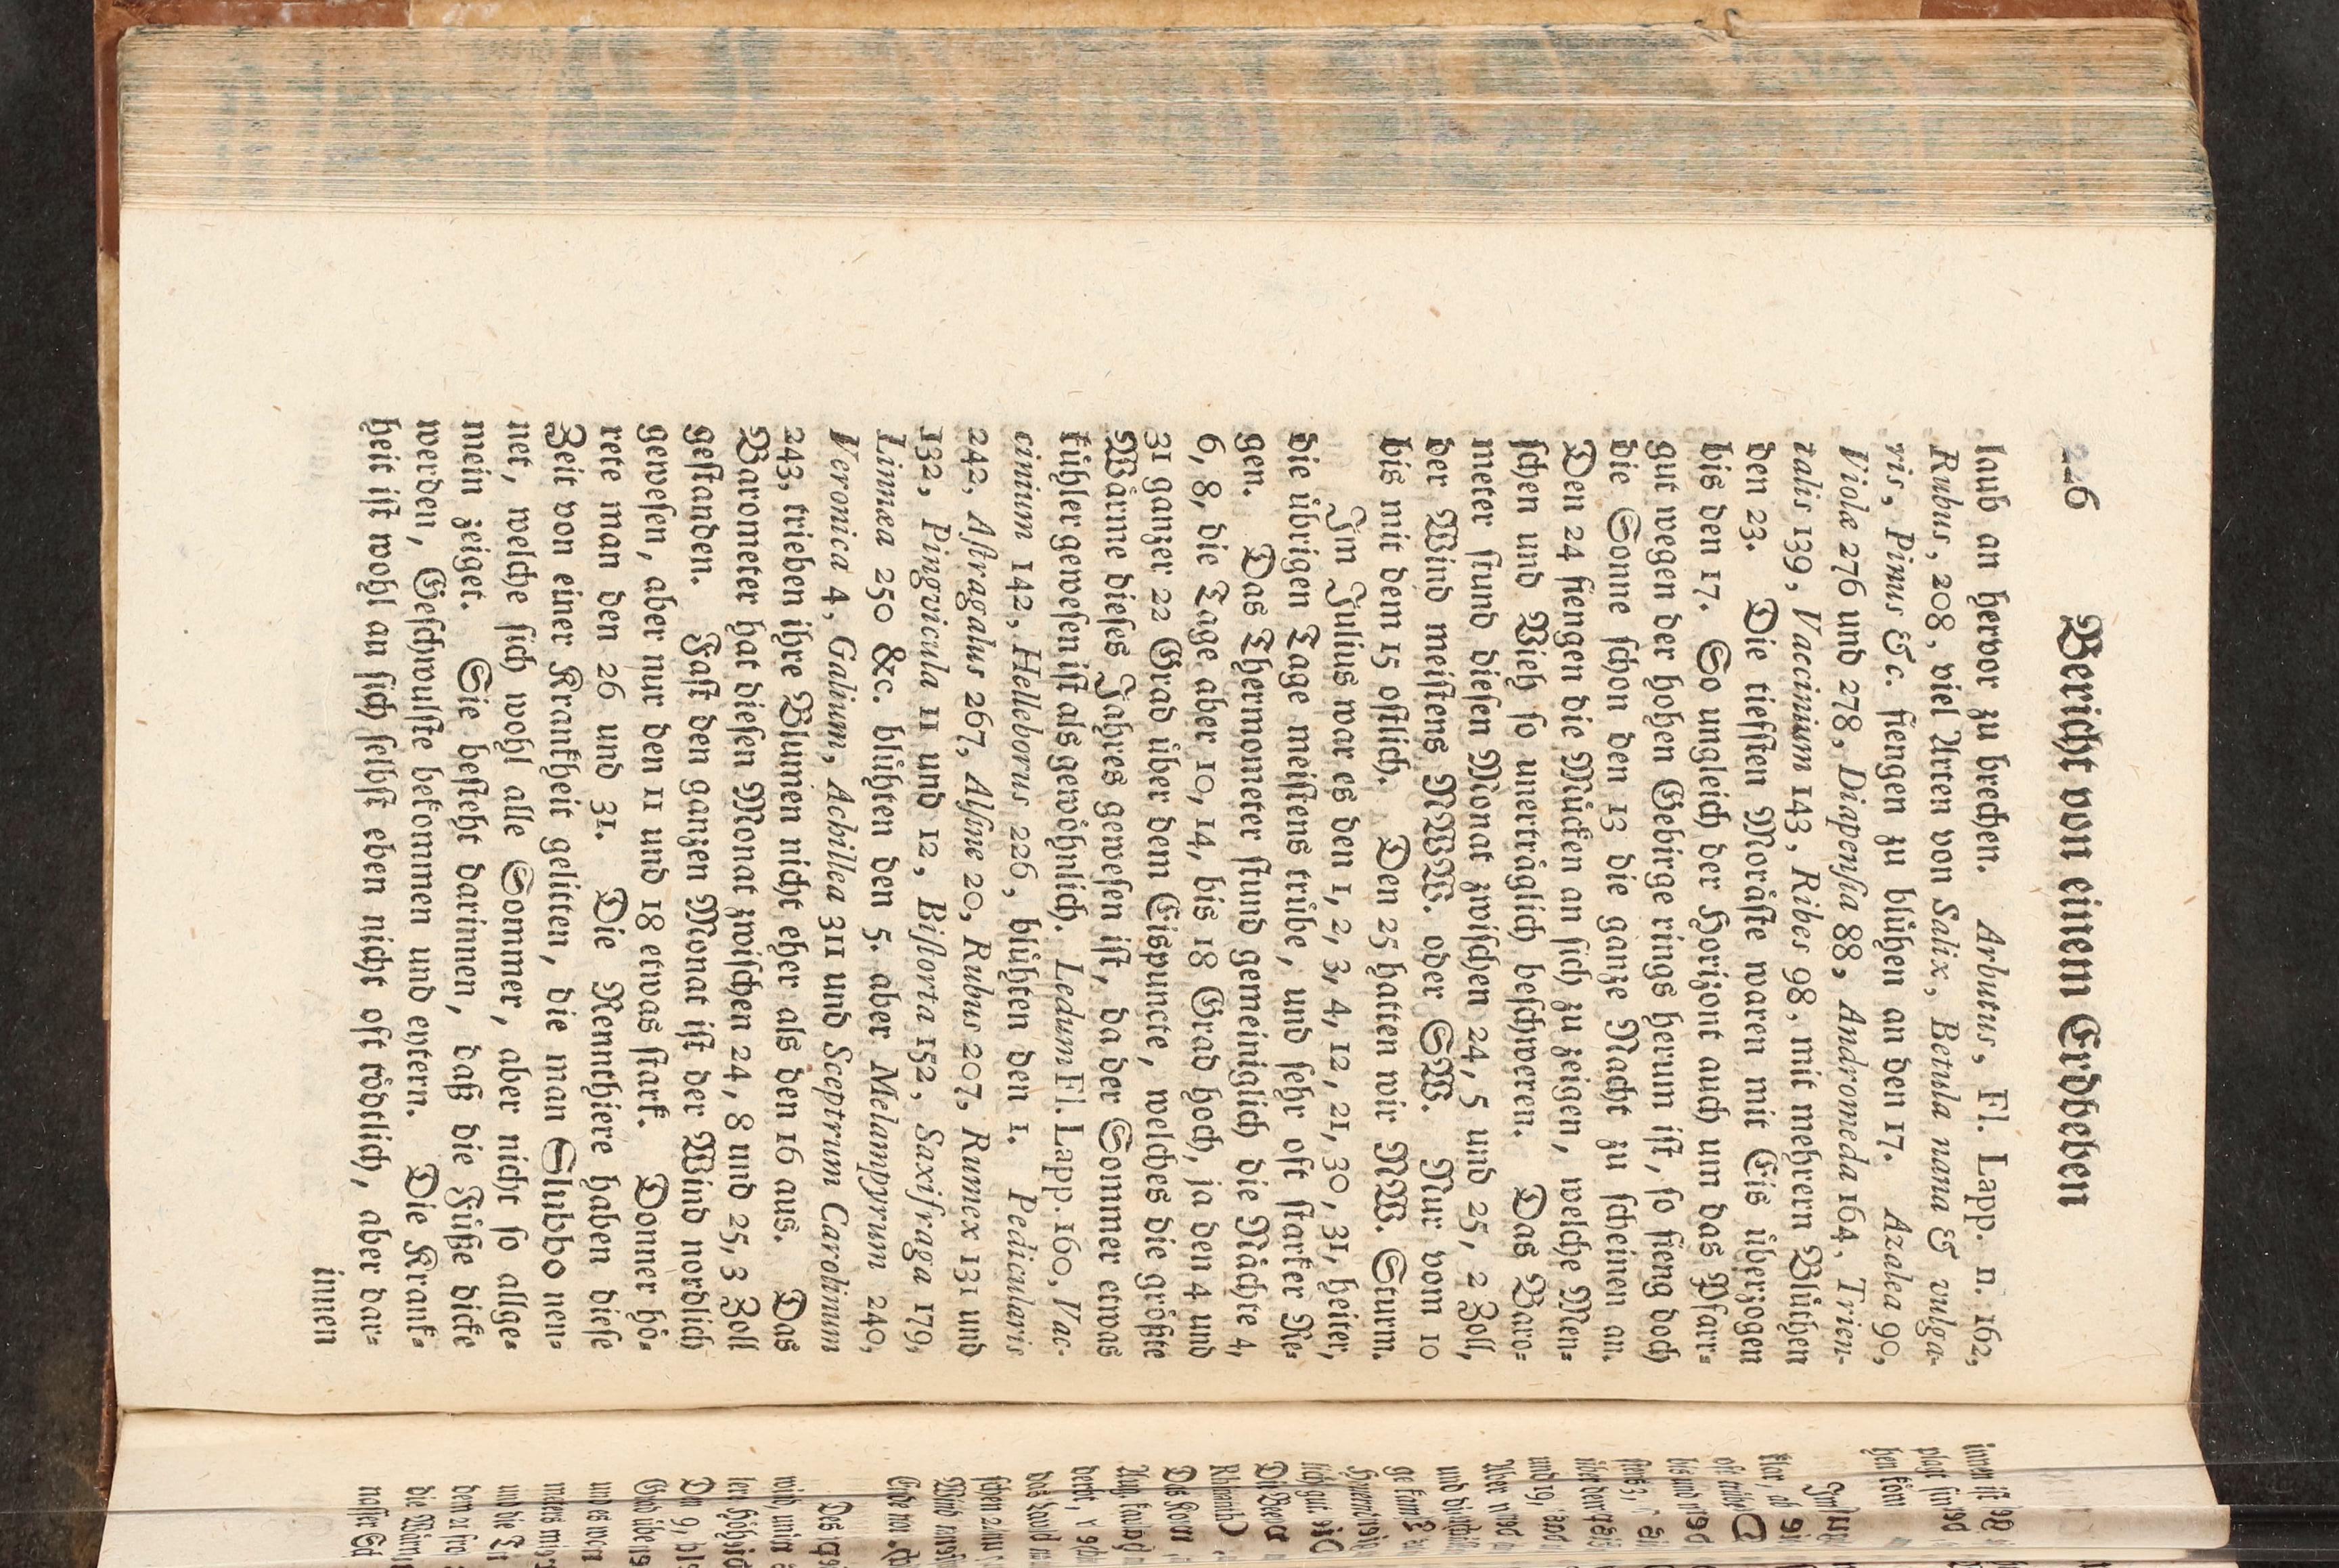 226 Bericht von einem Erdbeben
laub an hervor zu brechen. Arbutus, Fl. Lapp. n. 162,
Rubus, 208, viel Arten von Salix, Betula nana & vulga-
ris, Pinus &c. fiengen zu blühen an den 17. Azalea 90,
Viola 276 und 278, Diapenſia 88, Andromeda 164, Trien-
talis 139, Vaccinium 143, Ribes 98, mit mehrern Blüthen
den 23. Die tiefſten Moräſte waren mit Eis überzogen
bis den 17. So ungleich der Horizont auch um das Pfarr-
gut wegen der hohen Gebirge rings herum iſt, ſo fieng doch
die Sonne ſchon den 13 die ganze Nacht zu ſcheinen an.
Den 24 fiengen die Mücken an ſich zu zeigen, welche Men-
ſchen und Vieh ſo unerträglich beſchweren. Das Baro-
meter ſtund dieſen Monat zwiſchen 24, 5 und 25, 2 Zoll,
der Wind meiſtens NWW. oder SW. Nur vom 10
bis mit dem 15 oſtlich. Den 25 hatten wir NW. Sturm.
Im Julius war es den 1, 2, 3, 4, 12, 21, 30, 31, heiter,
die übrigen Tage meiſtens trübe, und ſehr oft ſtarker Re-
gen. Das Thermometer ſtund gemeiniglich die Nächte 4,
6, 8, die Tage aber 10, 14, bis 18 Grad hoch, ja den 4 und
31 ganzer 22 Grad über dem Eispuncte, welches die größte
Wärme dieſes Jahres geweſen iſt, da der Sommer etwas
kühler geweſen iſt als gewöhnlich. Ledum Fl. Lapp. 160, Vac-
cinium 142, Helleborus 226, blühten den 1. Pedicularis
242, Aſtragalus 267, Alſine 20, Rubus 207, Rumex 131 und
132, Pingvicula 11 und 12, Biſtorta 152, Saxifraga 179,
Linnæa 250 &c. blühten den 5. aber Melampyrum 240,
Veronica 4, Galium, Achillea 311 und Sceptrum Carolinum
243, trieben ihre Blumen nicht eher als den 16 aus. Das
Barometer hat dieſen Monat zwiſchen 24, 8 und 25, 3 Zoll
geſtanden. Faſt den ganzen Monat iſt der Wind nordlich
geweſen, aber nur den 11 und 18 etwas ſtark. Donner hö-
rete man den 26 und 31. Die Rennthiere haben dieſe
Zeit von einer Krankheit gelitten, die man Slubbo nen-
net, welche ſich wohl alle Sommer, aber nicht ſo allge-
mein zeiget. Sie beſteht darinnen, daß die Füße dicke
werden, Geſchwulſte bekommen und eytern. Die Krank-
heit iſt wohl an ſich ſelbſt eben nicht oft tödtlich, aber dar-
innen